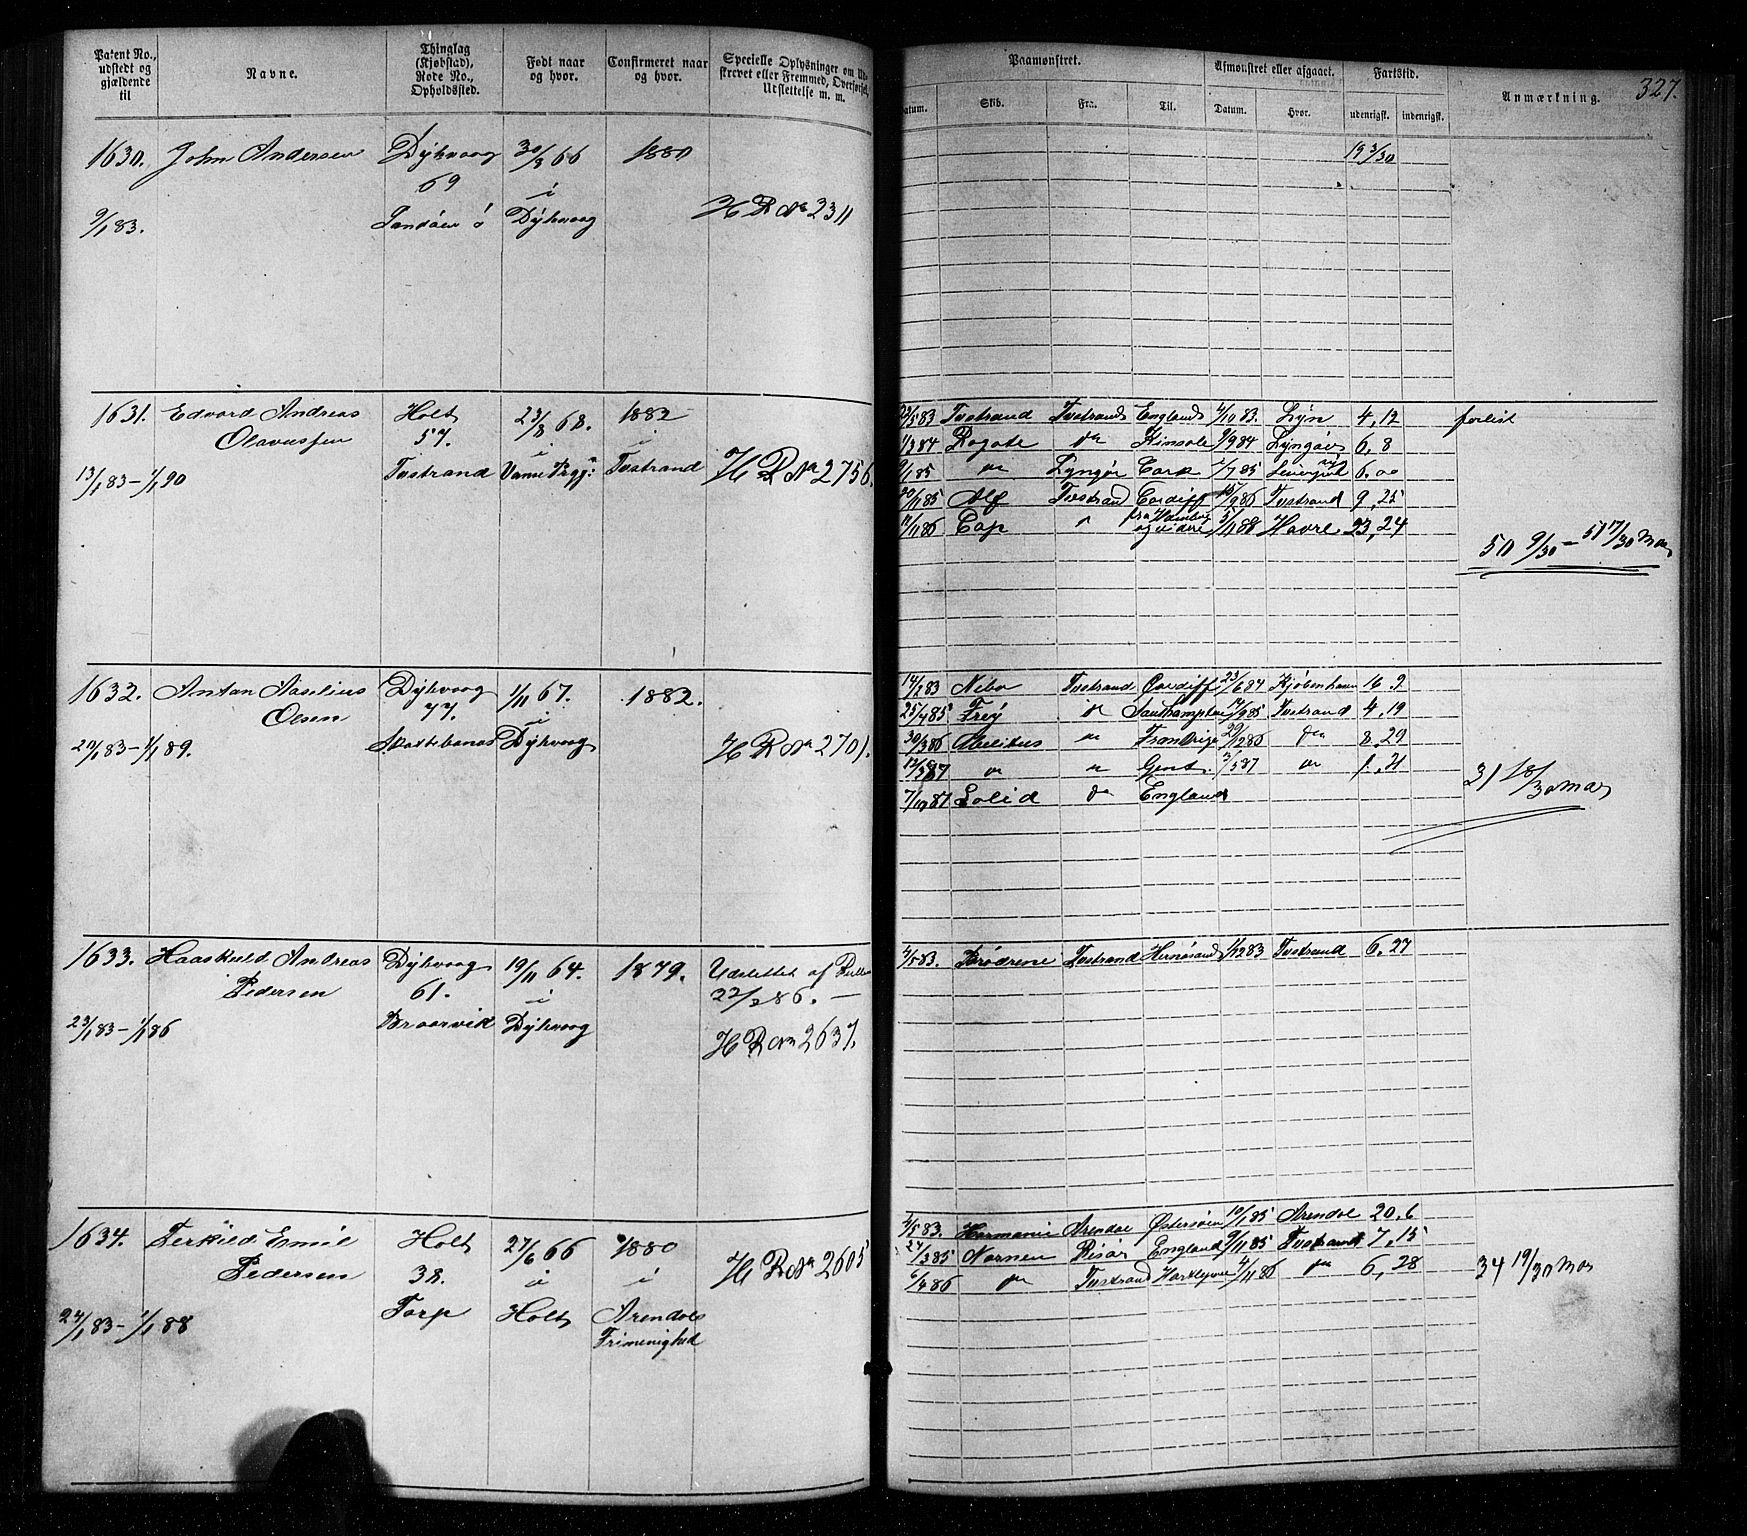 327.
Patent No., udstedt og gjældende til
Navne.
Thinglag (Kjøbstad), Rode No., Opholdssted.
Født naar og hvor.
Confirmeret naar og hvor.
Specielle Oplysninger om Ud-
skrevet eller Fremmed, Overførsel,
Udslettelse m. m.
Paamønstret.
Afmønstret eller afgaaet.
Fartstid.
Anmærkning.
Datum. Skib. Fra. Til. Datum. Hvor. udenrigsk. indenrigsk.
1630. John Andersen Dýhvaag 30/3 66 1880 19 3/30
69 i
9/1 83. Sandøen ó Dýhvaag H R No 2311
1631. Edvard Andreas Holt 23/8 68. 1882 22/5 83 Tvestrand Tvestrand England 4/10 83. Lyn 4, 12 forlist
Olavussen 57. i i 1/3 84 Rogate do Kinsale 9/9 84 Lyngøer 6, 8
13/1 83 - 1/1 90 Tvestrand Vanse Prgj: Tvestrand H R No 2756. 9/1 85 do Lyngør Cork 7/7 85 6, 00
20/11 85 Alf Tvestrand Cardiff 15/9 86 Tvestrand 9, 25
11/11 86 Cap " fra Hamburg og videre 5/11 88 Havre 23, 24
50 9/30 - 51 17/30 Mdr
1632. Anton Aaselius Dýhvaag 1/11 67. 1882. 14/2 83 Nebo Tvestrand Cardiff 23/6 84 Kjøbenhavn 16 9
Olsen 77. i 25/4 85 Freý do Southampton 14/9 85 Tvestrand 4, 19
20/1 83 - 1/1 89. Dýhvaag H R No 2701. 30/3 86 do Frankrige 29/12 86 do 8, 29
12/3 87 do do Gent. 3/5 87 do 1, 21
7/10 87 Solid do England
31 18/30 Mdr
1633. Haaskuld Andreas Dýhvaag 19/11 64. 1879. Udslettet af Rullen 4/5 83. Brødrene Tvestrand Hernøsand 1/12 83 Tvestrand 6, 27
Pedersen 61. i 22/2 86. —
23/1 83 - 1/1 86 Braarvik Dýhvaag H R No 2637.
1634. Terkild Emil Holt 27/6 66 1880 2/5 83. Hermanie Arendal Østersøen 10/1 85 Arendal 20, 6
Pedersen 38. i i H R No 2605 24/3 85 Nornen Risør England 9/11 85 Tvestrand 7, 15
24/1 83 - 1/1 88 Torp Holt Arendals Frimenighed 6/4 86 do Tvestrand 4/11 86 do 6, 28
34 19/30 Mdr